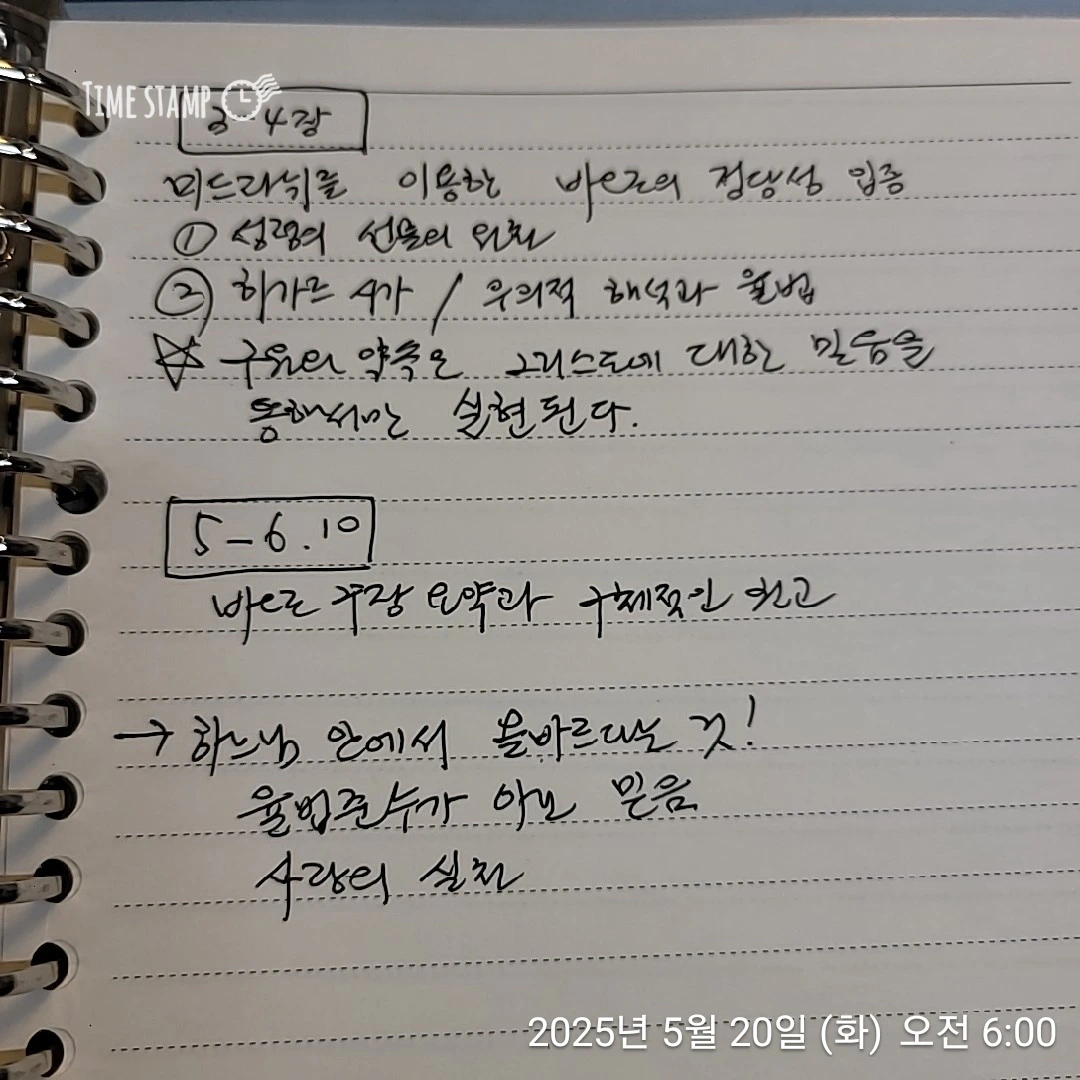 TIME STAMP
3-4장
미드라쉬를 이용한 바오로의 정당성 입증
① 성령의 선물의 원천
② 하가르 사가 / 우의적 해석과 율법
☆ 구원의 약속은 그리스도에 대한 믿음을
통해서만 실현된다.
5-6.10
바오로 주장 요약과 구체적인 권고
→ 하느님 안에서 올바르다는 것!
율법준수가 아닌 믿음
사랑의 실천
2025년 5월 20일 (화) 오전 6:00